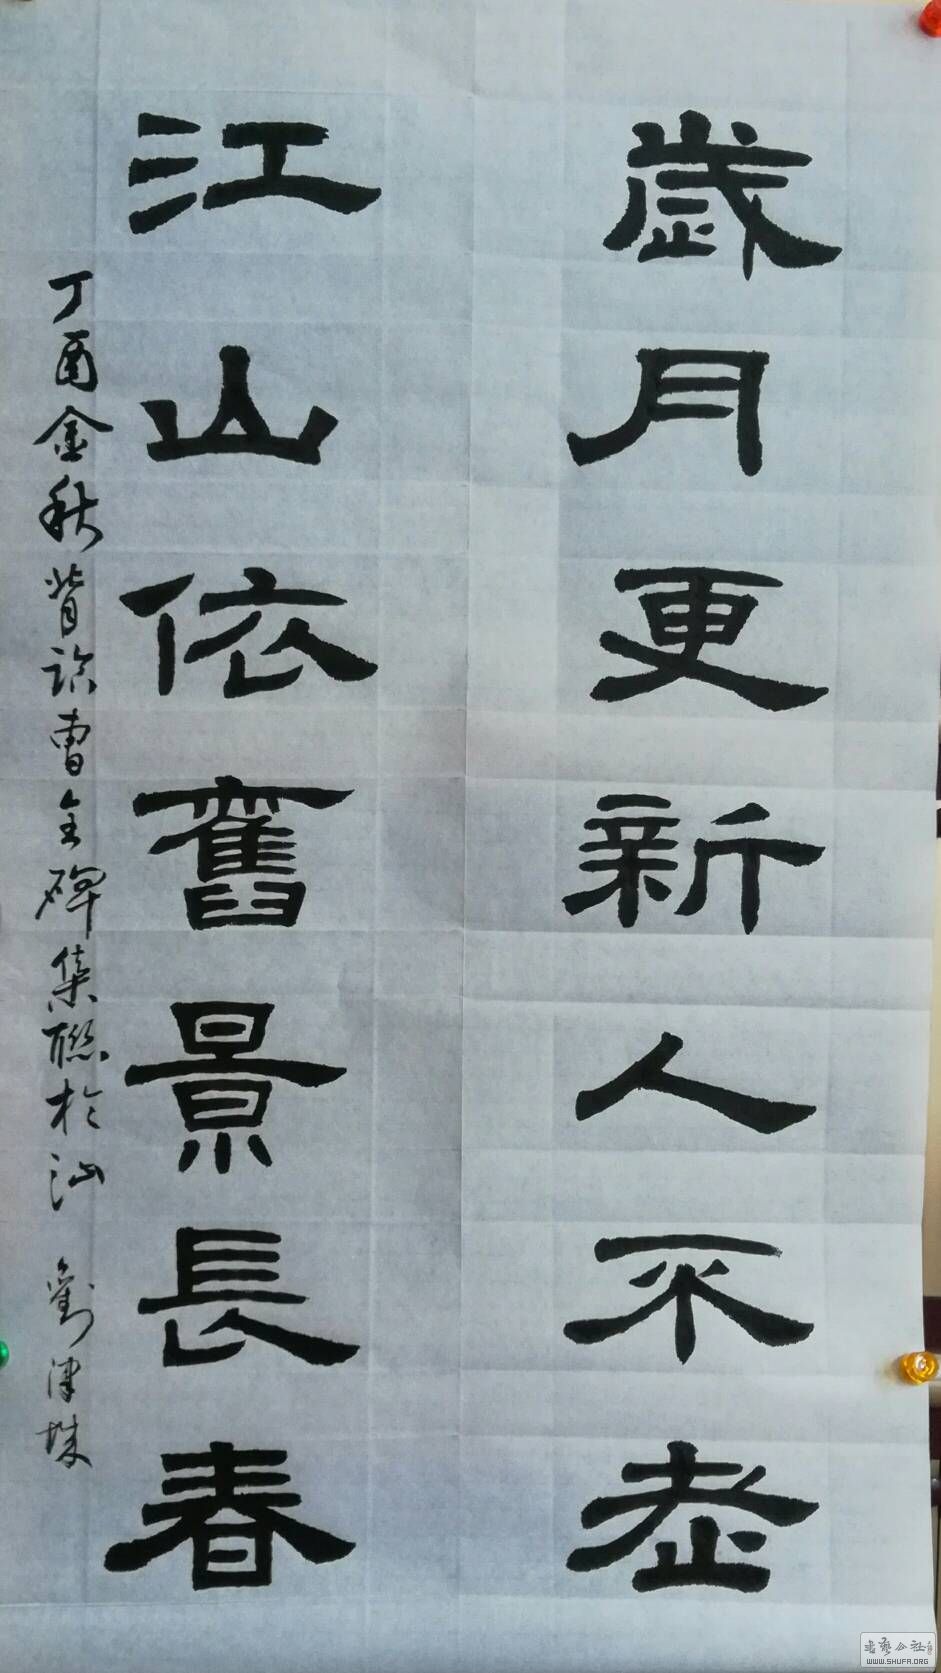 歲月更新人不老
江山依舊景長春
丁酉金秋背臨曹全碑集聯於汕 劉津城
書藝公社
WWW.SHUFA.ORG